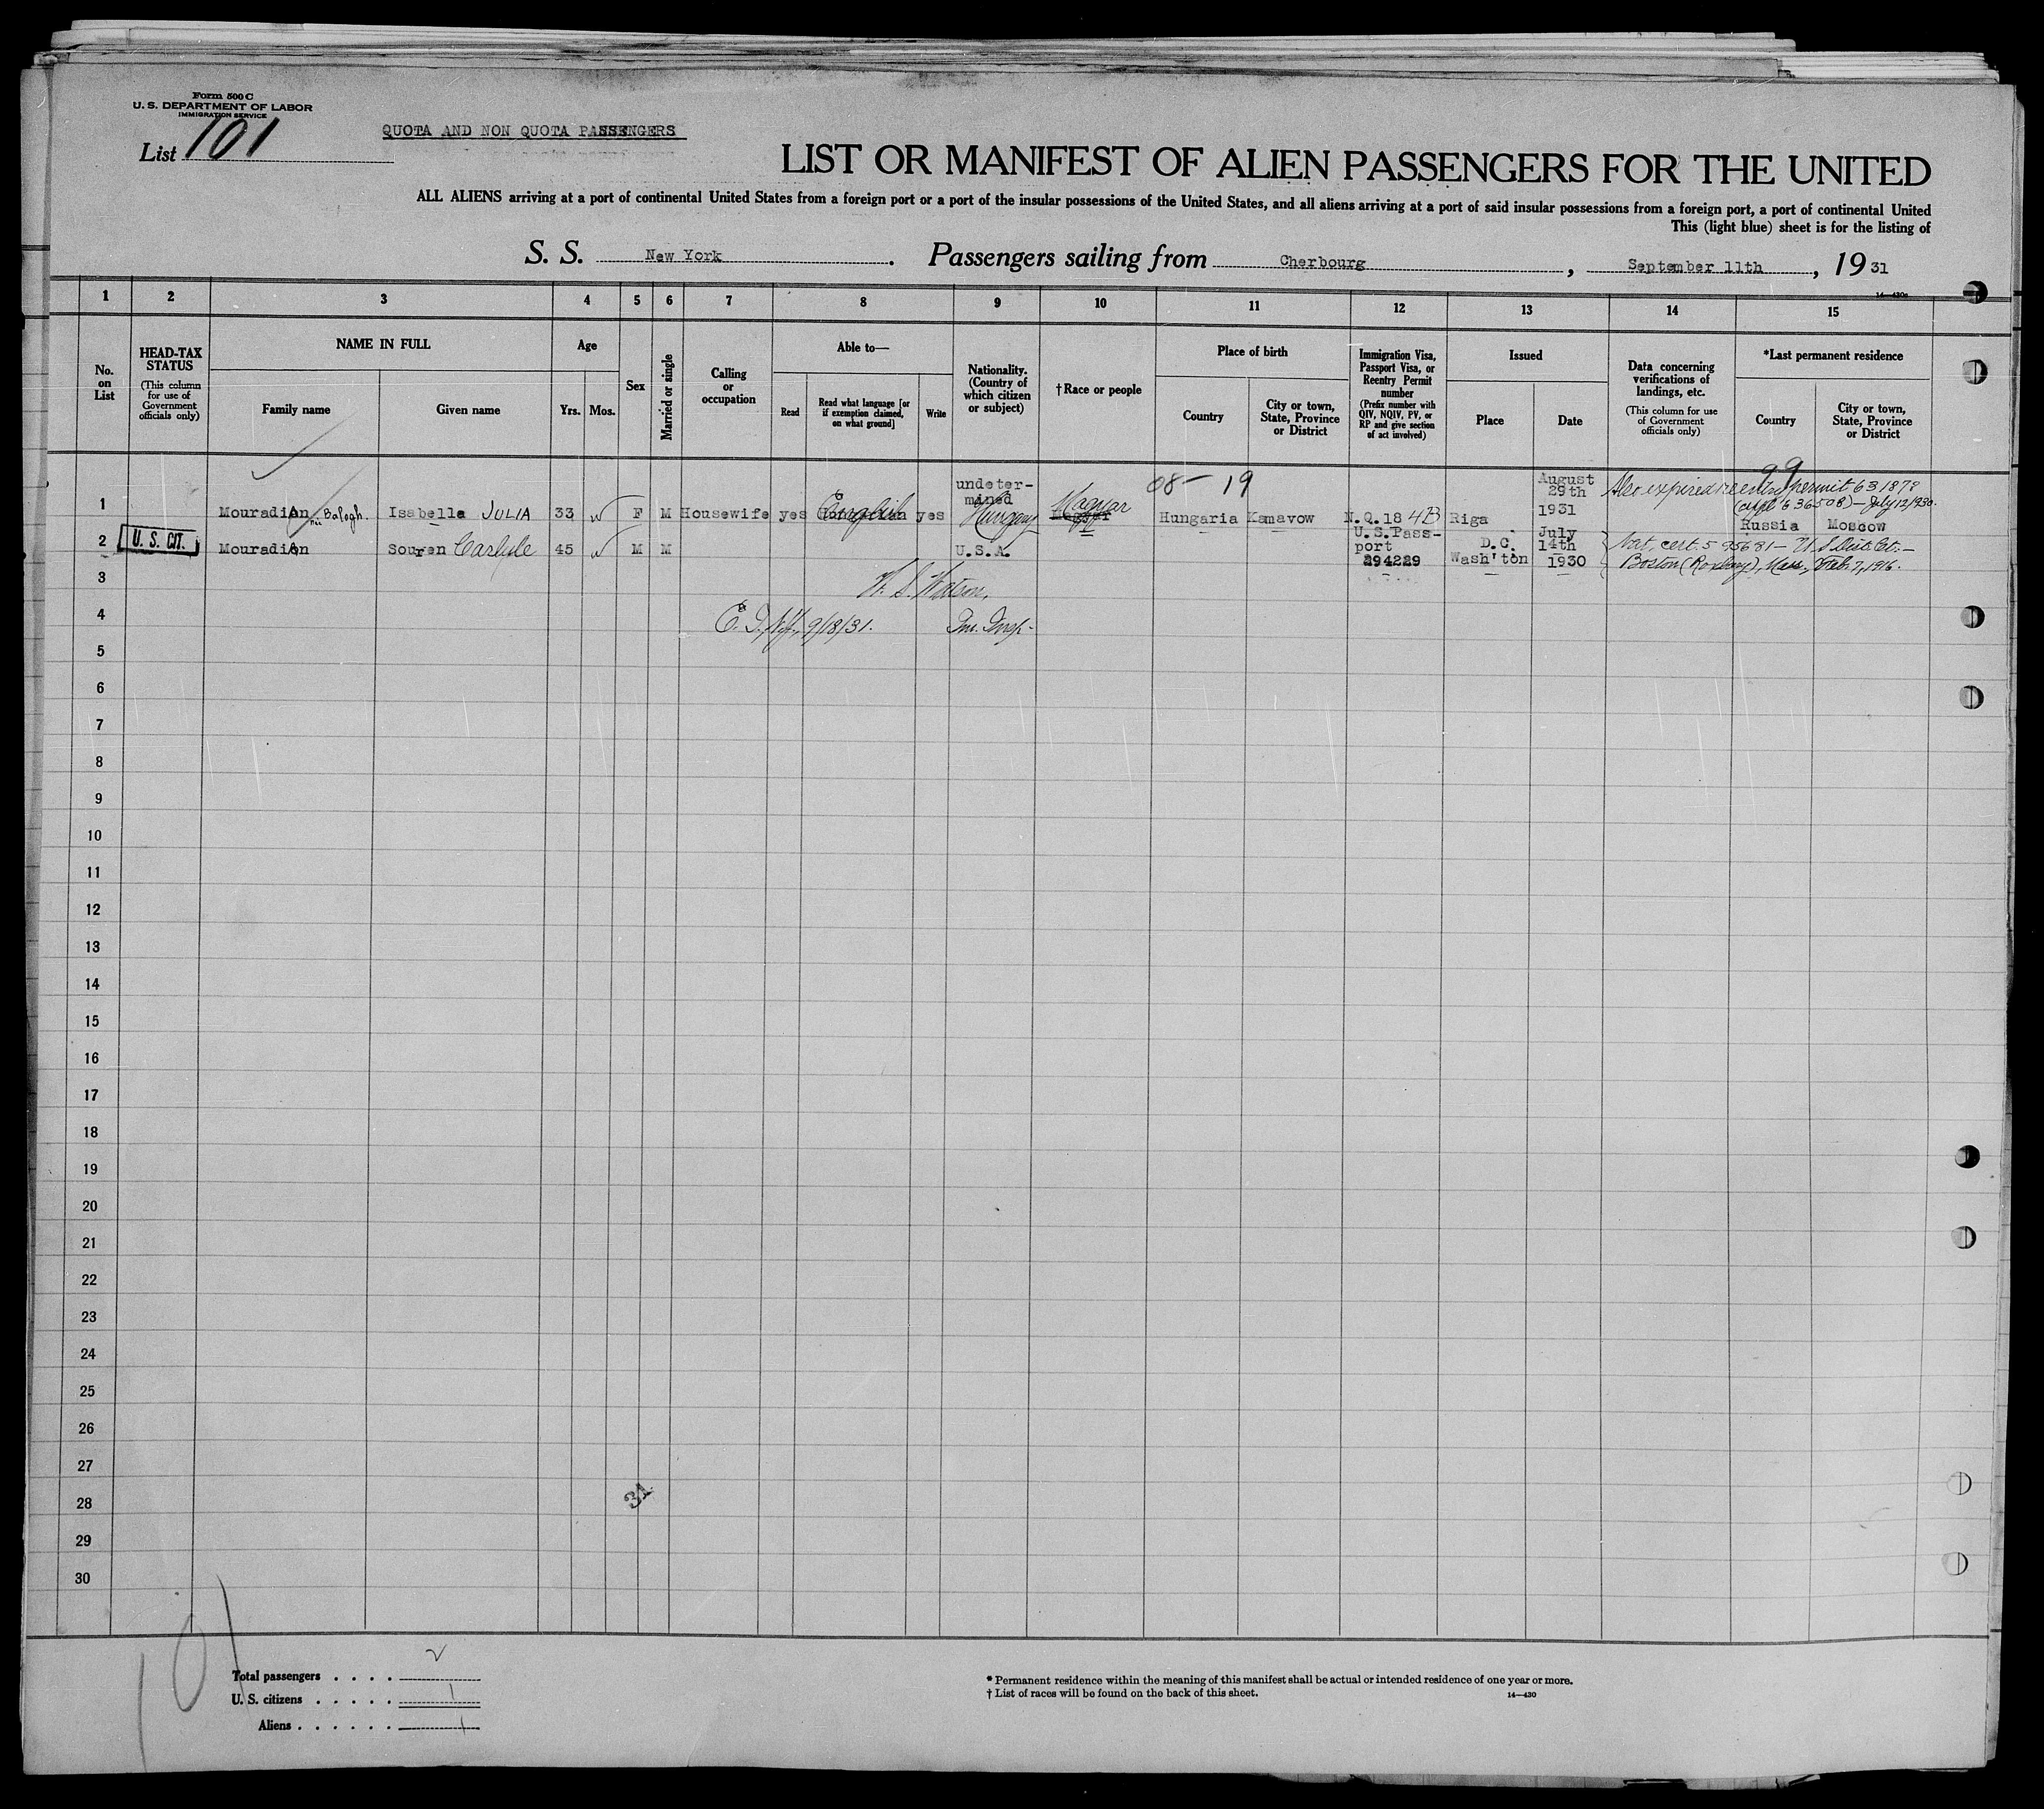 Form 500 C
U. S. DEPARTMENT OF LABOR
IMMIGRATION SERVICE
List 101
QUOTA AND NON QUOTA PASSENGERS
LIST OR MANIFEST OF ALIEN PASSENGERS FOR THE UNITED
ALL ALIENS arriving at a port of continental United States from a foreign port or a port of the insular possessions of the United States, and all aliens arriving at a port of said insular possessions from a foreign port, a port of continental United
This (light blue) sheet is for the listing of
S. S. New York. Passengers sailing from Cherbourg, September 11th, 1931
14—430a
1 2 3 4 5 6 7 8 9 10 11 12 13 14 15
No. on List
HEAD-TAX STATUS
(This column for use of Government officials only)
NAME IN FULL
Family name
Given name
Age
Yrs. Mos.
Sex
Married or single
Calling or occupation
Able to—
Read
Read what language [or if exemption claimed, on what ground]
Write
Nationality. (Country of which citizen or subject)
†Race or people
Place of birth
Country
City or town, State, Province or District
Immigration Visa, Passport Visa, or Reentry Permit number
(Prefix number with QIV, NQIV, PV, or RP and give section of act involved)
Issued
Place
Date
Data concerning verifications of landings, etc.
(This column for use of Government officials only)
*Last permanent residence
Country
City or town, State, Province or District
99
08 — 19
1 Mouradian née Balogh. Isabella JULIA 33 F M Housewife yes English yes undetermined Hungary Magyar Hungaria Kamavow N.Q.18 4B Riga August 29th 1931 Also expired reentry permit 631878
(appl 636508) — July 12/1930.
Russia Moscow
2 U. S. CIT. Mouradian Souren Carlyle 45 M M U.S.A. U.S.Passport 294229 D.C. Wash'ton July 14th 1930 Nat. cert. 595681 — U.S. Dist. Ct. —
Boston (Roxbury), Mass., Feb. 7, 1916.
3
W. S. Watson,
4 9/18/31. Im. Insp.
5
6
7
8
9
10
11
12
13
14
15
16
17
18
19
20
21
22
23
24
25
26
27
28 31
29
30
101
Total passengers . . . . 2
U. S. citizens . . . . . 1
Aliens . . . . . . 1
* Permanent residence within the meaning of this manifest shall be actual or intended residence of one year or more.
† List of races will be found on the back of this sheet.
14—430